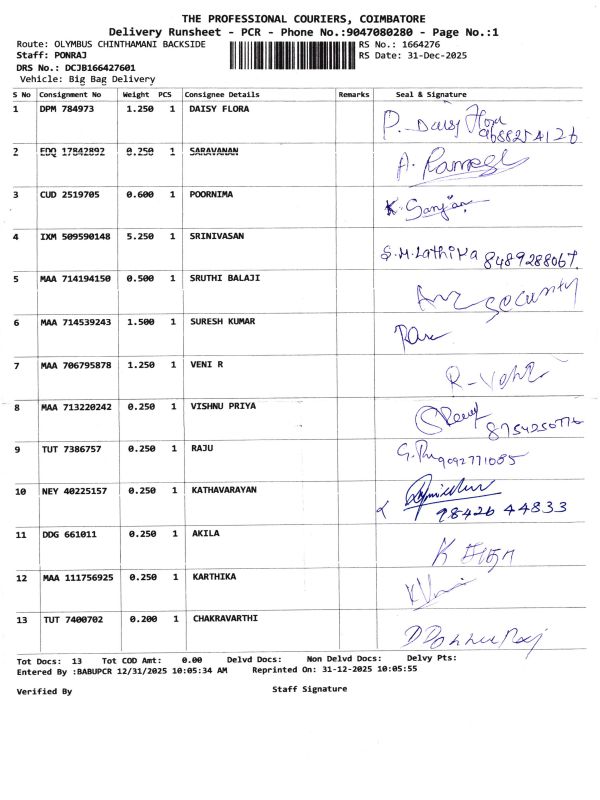 THE PROFESSIONAL COURIERS, COIMBATORE
Delivery Runsheet - PCR - Phone No.:9047080280 - Page No.:1
Route: OLYMBUS CHINTHAMANI BACKSIDE RS No.: 1664276
Staff: PONRAJ RS Date: 31-Dec-2025
DRS No.: DCJB166427601
Vehicle: Big Bag Delivery
S No Consignment No Weight PCS Consignee Details Remarks Seal & Signature
1 DPM 784973 1.250 1 DAISY FLORA P. Daisy Flora
2 EDQ 17842892 0.250 1 SARAVANAN A. Ramesh
3 CUD 2519705 0.600 1 POORNIMA K. Sanjai
4 IXM 509590148 5.250 1 SRINIVASAN S.M.Lathika 8489288067.
5 MAA 714194150 0.500 1 SRUTHI BALAJI Security
6 MAA 714539243 1.500 1 SURESH KUMAR
7 MAA 706795878 1.250 1 VENI R
8 MAA 713220242 0.250 1 VISHNU PRIYA
9 TUT 7386757 0.250 1 RAJU 9092771085
10 NEY 40225157 0.250 1 KATHAVARAYAN 98426 44833
11 DDG 661011 0.250 1 AKILA
12 MAA 111756925 0.250 1 KARTHIKA
13 TUT 7400702 0.200 1 CHAKRAVARTHI
Tot Docs: 13 Tot COD Amt: 0.00 Delvd Docs: Non Delvd Docs: Delvy Pts:
Entered By :BABUPCR 12/31/2025 10:05:34 AM Reprinted On: 31-12-2025 10:05:55
Verified By Staff Signature